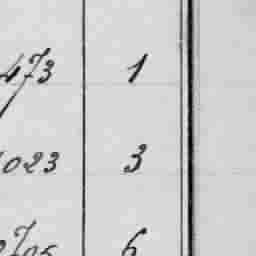 473 1
1023 3
2705 6